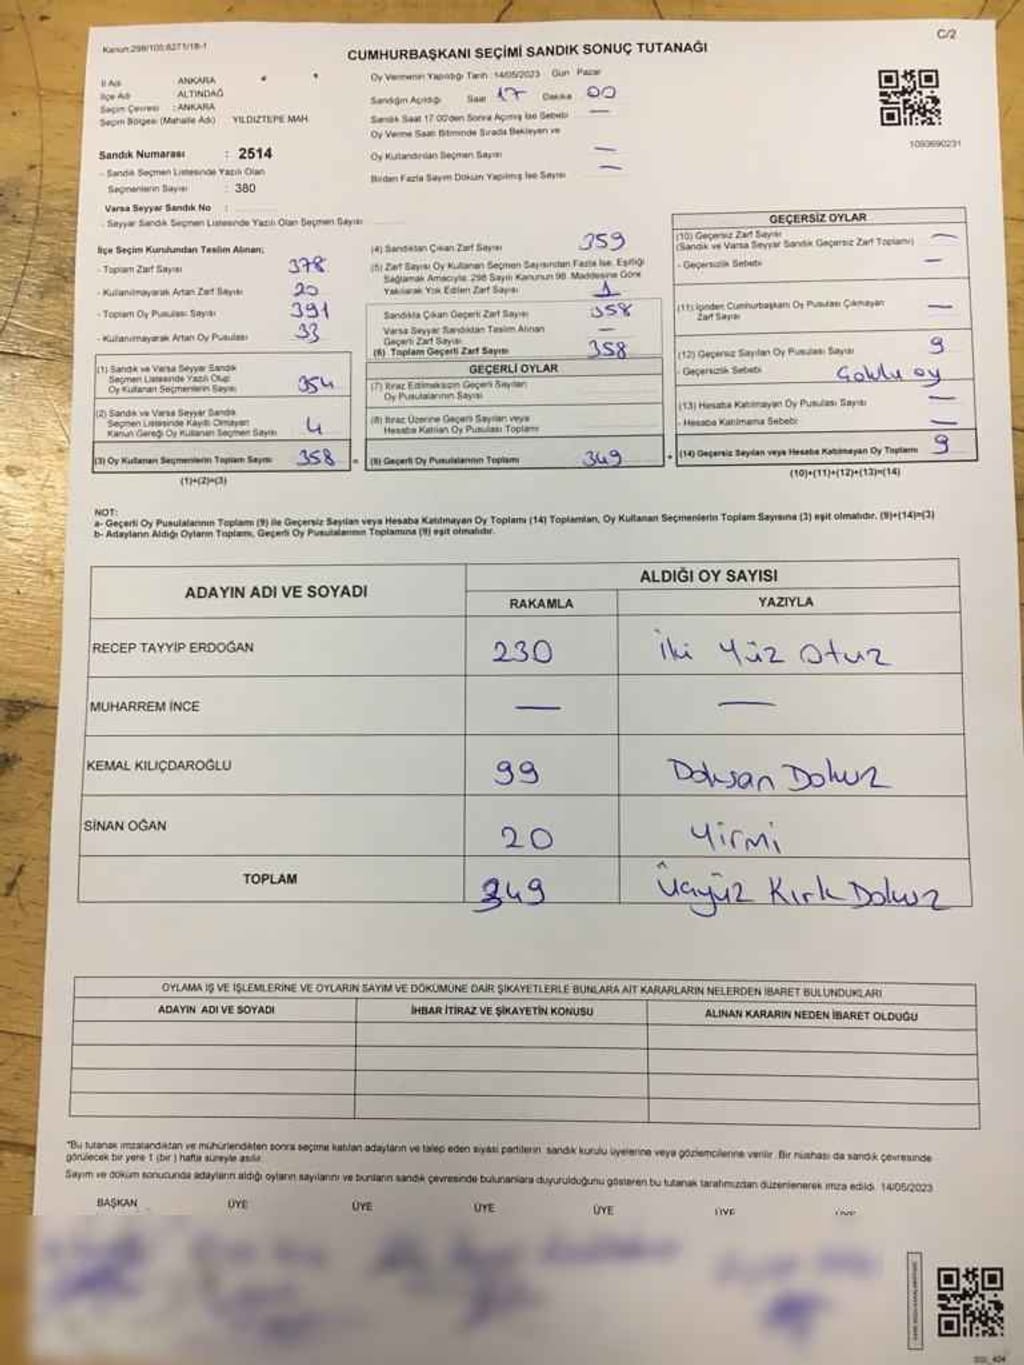 Kanun:298/105;6271/18-1
C/2
CUMHURBAŞKANI SEÇİMİ SANDIK SONUÇ TUTANAĞI
İl Adı : ANKARA
İlçe Adı : ALTINDAĞ
Seçim Çevresi : ANKARA
Seçim Bölgesi (Mahalle Adı) YILDIZTEPE MAH.
Sandık Numarası : 2514
- Sandık Seçmen Listesinde Yazılı Olan
Seçmenlerin Sayısı : 380
Varsa Seyyar Sandık No :
- Seyyar Sandık Seçmen Listesinde Yazılı Olan Seçmen Sayısı
Oy Vermenin Yapıldığı Tarih : 14/05/2023 Gün : Pazar
Sandığın Açıldığı Saat 17 Dakika 00
Sandık Saat 17:00'den Sonra Açılmış İse Sebebi —
Oy Verme Saati Bitiminde Sırada Bekleyen ve
Oy Kullandırılan Seçmen Sayısı —
Birden Fazla Sayım Döküm Yapılmış İse Sayısı —
1093690231
İlçe Seçim Kurulundan Teslim Alınan;
- Toplam Zarf Sayısı 378
- Kullanılmayarak Artan Zarf Sayısı 20
- Toplam Oy Pusulası Sayısı 391
- Kullanılmayarak Artan Oy Pusulası 33
(1) Sandık ve Varsa Seyyar Sandık
Seçmen Listesinde Yazılı Olup
Oy Kullanan Seçmenlerin Sayısı 354
(2) Sandık ve Varsa Seyyar Sandık
Seçmen Listesinde Kayıtlı Olmayan
Kanun Gereği Oy Kullanan Seçmen Sayısı 4
(3) Oy Kullanan Seçmenlerin Toplam Sayısı 358
(1)+(2)=(3)
(4) Sandıktan Çıkan Zarf Sayısı 359
(5) Zarf Sayısı Oy Kullanan Seçmen Sayısından Fazla İse, Eşitliği
Sağlamak Amacıyla, 298 Sayılı Kanunun 98. Maddesine Göre
Yakılarak Yok Edilen Zarf Sayısı 1
Sandıkta Çıkan Geçerli Zarf Sayısı 358
Varsa Seyyar Sandıktan Teslim Alınan
Geçerli Zarf Sayısı —
(6) Toplam Geçerli Zarf Sayısı 358
GEÇERLİ OYLAR
(7) İtiraz Edilmeksizin Geçerli Sayılan
Oy Pusulalarının Sayısı
(8) İtiraz Üzerine Geçerli Sayılan veya
Hesaba Katılan Oy Pusulası Toplamı
= (9) Geçerli Oy Pusulalarının Toplamı 349
GEÇERSİZ OYLAR
(10) Geçersiz Zarf Sayısı —
(Sandık ve Varsa Seyyar Sandık Geçersiz Zarf Toplamı)
- Geçersizlik Sebebi —
(11) İçinden Cumhurbaşkanı Oy Pusulası Çıkmayan
Zarf Sayısı —
(12) Geçersiz Sayılan Oy Pusulası Sayısı 9
- Geçersizlik Sebebi Çoklu oy
(13) Hesaba Katılmayan Oy Pusulası Sayısı —
- Hesaba Katılmama Sebebi —
+ (14) Geçersiz Sayılan veya Hesaba Katılmayan Oy Toplamı 9
(10)+(11)+(12)+(13)=(14)
NOT:
a- Geçerli Oy Pusulalarının Toplamı (9) ile Geçersiz Sayılan veya Hesaba Katılmayan Oy Toplamı (14) Toplamları, Oy Kullanan Seçmenlerin Toplam Sayısına (3) eşit olmalıdır. (9)+(14)=(3)
b- Adayların Aldığı Oyların Toplamı, Geçerli Oy Pusulalarının Toplamına (9) eşit olmalıdır.
ADAYIN ADI VE SOYADI ALDIĞI OY SAYISI
RAKAMLA YAZIYLA
RECEP TAYYİP ERDOĞAN 230 İki Yüz Otuz
MUHARREM İNCE — —
KEMAL KILIÇDAROĞLU 99 Doksan Dokuz
SİNAN OĞAN 20 Yirmi
TOPLAM 349 Üçyüz Kırk Dokuz
OYLAMA İŞ VE İŞLEMLERİNE VE OYLARIN SAYIM VE DÖKÜMÜNE DAİR ŞİKAYETLERLE BUNLARA AİT KARARLARIN NELERDEN İBARET BULUNDUKLARI
ADAYIN ADI VE SOYADI İHBAR İTİRAZ VE ŞİKAYETİN KONUSU ALINAN KARARIN NEDEN İBARET OLDUĞU
*Bu tutanak imzalandıktan ve mühürlendikten sonra seçime katılan adayların ve talep eden siyasi partilerin sandık kurulu üyelerine veya gözlemcilerine verilir. Bir nüshası da sandık çevresinde
görülecek bir yere 1 (bir) hafta süreyle asılır.
Sayım ve döküm sonucunda adayların aldığı oyların sayılarını ve bunların sandık çevresinde bulunanlara duyurulduğunu gösteren bu tutanak tarafımızdan düzenlenerek imza edildi. 14/05/2023
BAŞKAN ÜYE ÜYE ÜYE ÜYE ÜYE ÜYE